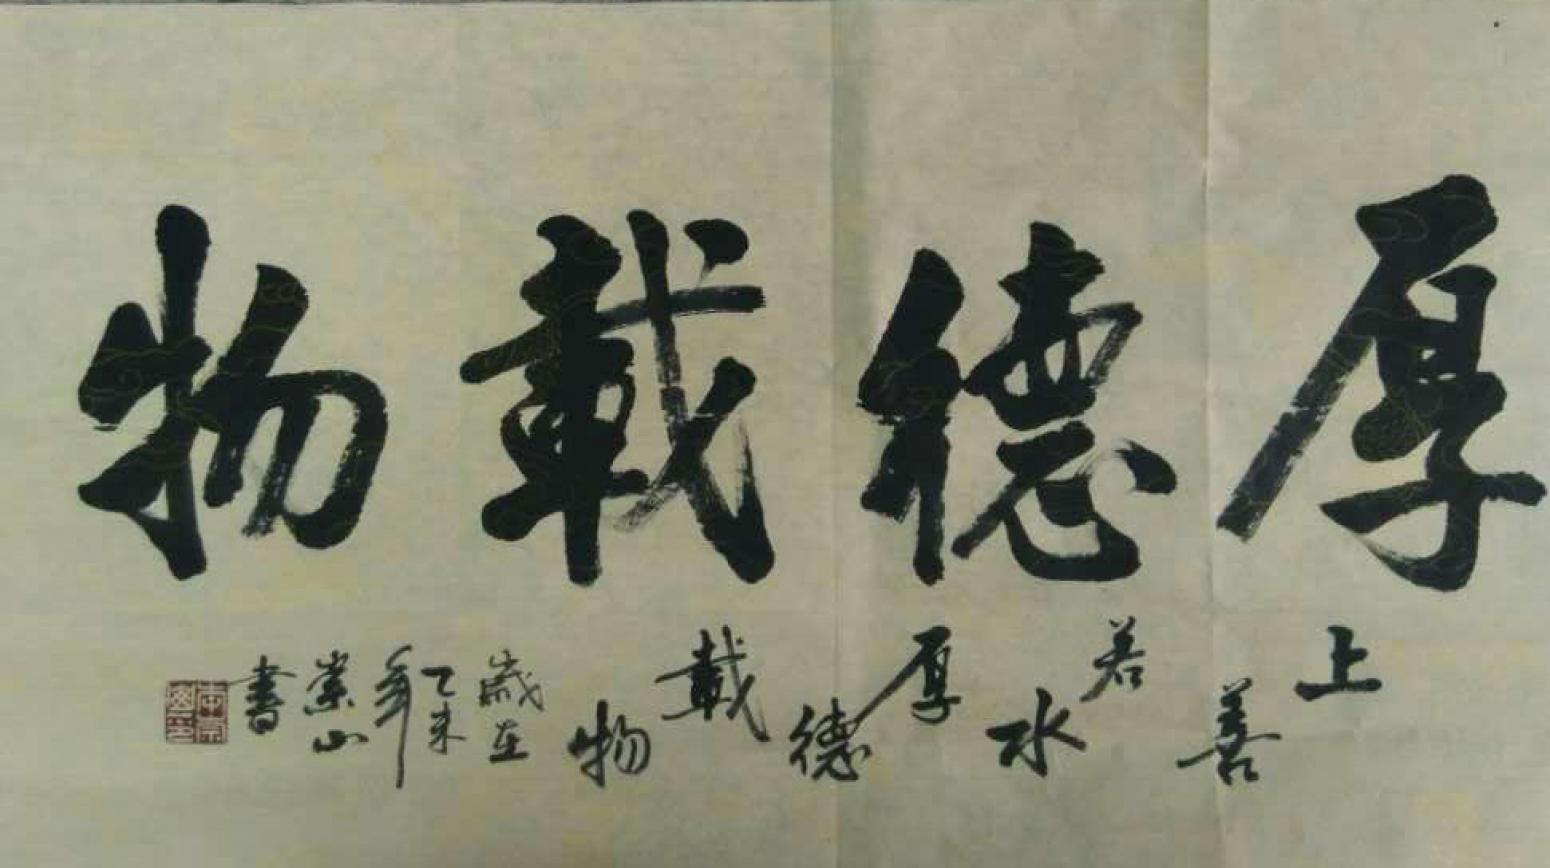 厚德載物
上善若水厚德載物
歲在
乙未
年
崇山
書